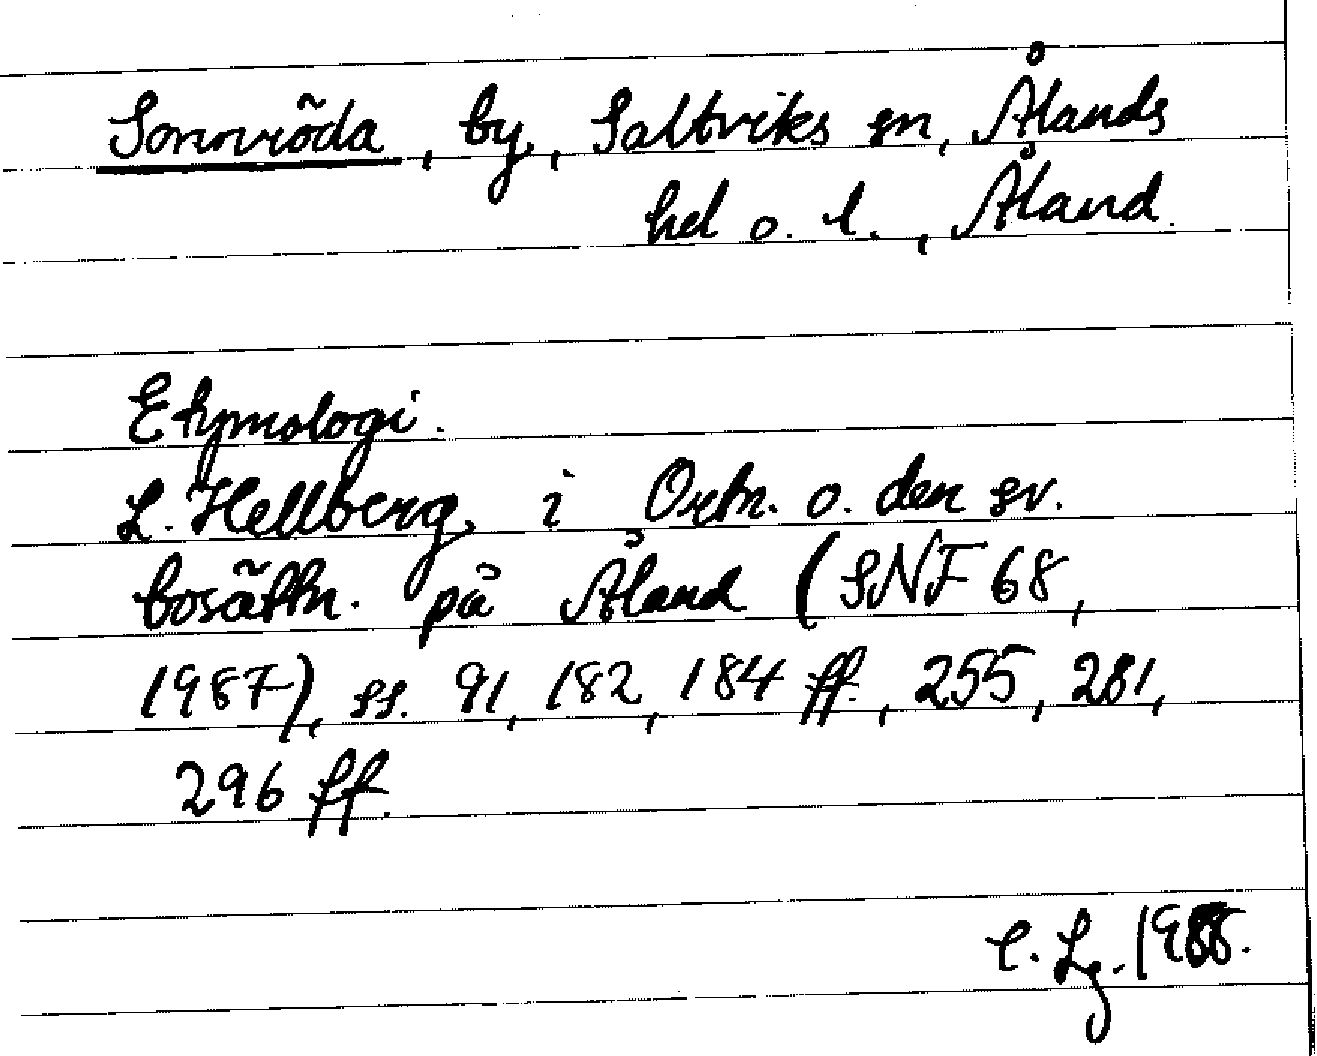 Sonnröda, by, Saltviks sn, Ålands
hd o. l., Åland.
Etymologi.
L. Hellberg, i Ortn. o. den sv.
bosättn. på Åland (SNF 68,
1987), ss. 91, 182, 184 ff., 255, 281,
296 ff.
C. Lg. 1988.